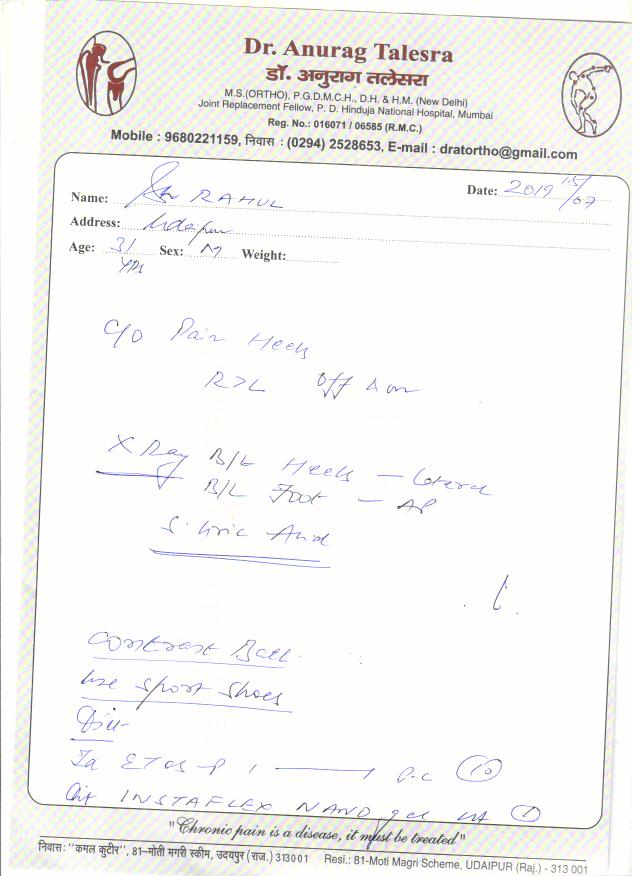 Dr. Anurag Talesra
डॉ. अनुराग तलेसरा
M.S.(ORTHO), P.G.D.M.C.H., D.H. & H.M. (New Delhi)
Joint Replacement Fellow, P. D. Hinduja National Hospital, Mumbai
Reg. No.: 016071 / 06585 (R.M.C.)
Mobile : 9680221159, निवास : (0294) 2528653, E-mail : dratortho@gmail.com
Name: RAHUL Date: 2019 15/07
Address: Udaipur
Age: 31 yrs Sex: M Weight:
C/O Pain Heels
R>L off & on
X Ray B/L Heels - Lateral
B/L Foot - AP
S. Uric Acid
Contrast Bath
Use Sport Shoes
Ta ETOS-P 1 ——— 1 P.C (10)
INSTAFLEX NANO gel (1)
"Chronic pain is a disease, it must be treated"
निवास: "कमल कुटीर", 81-मोती मगरी स्कीम, उदयपुर (राज.) 313001 Resi.: 81-Moti Magri Scheme, UDAIPUR (Raj.) - 313 001